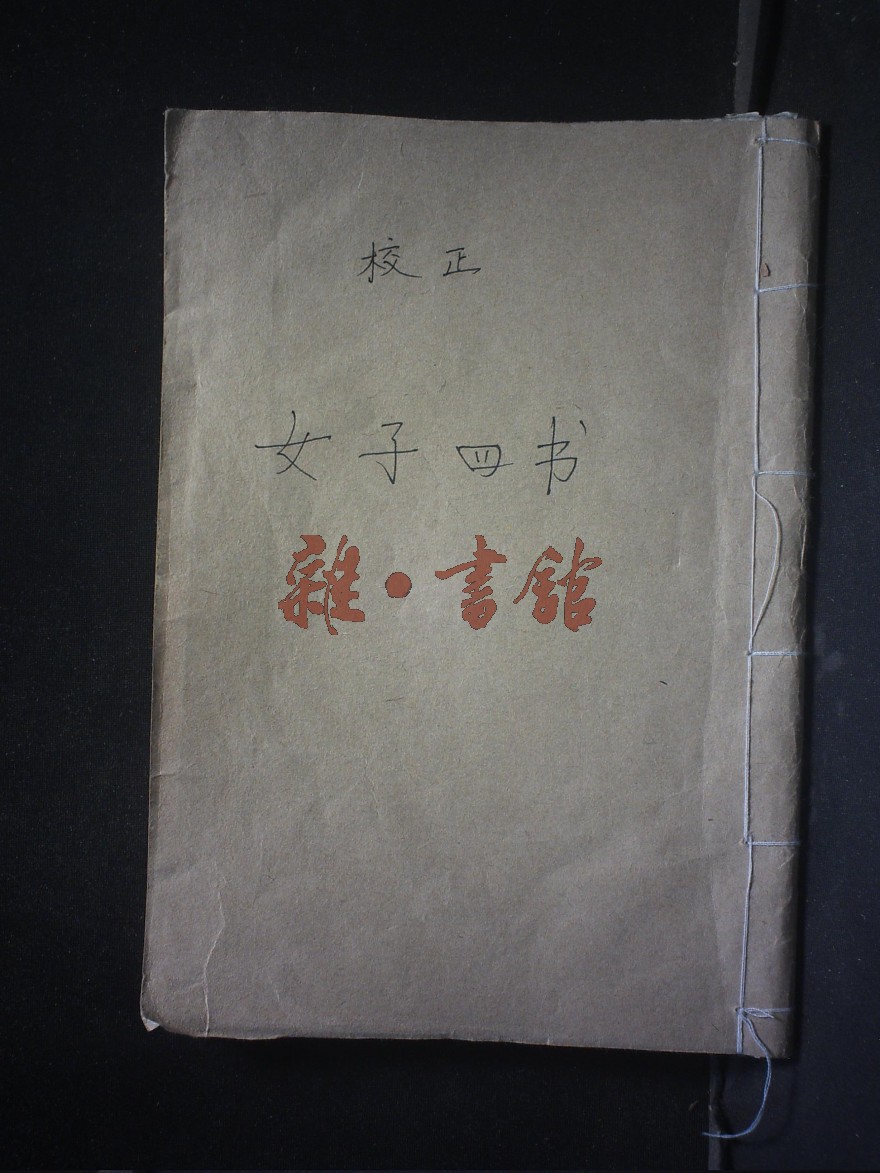 校正
女子四书
雜·書館